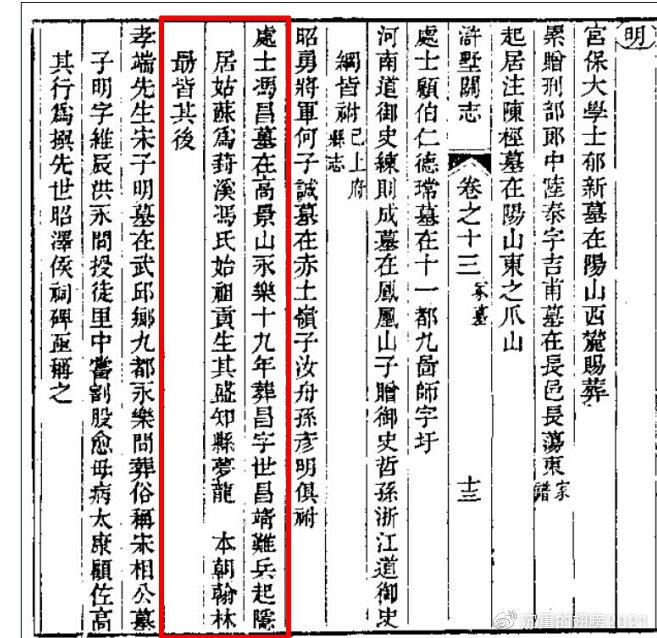 明
宮保大學士郁新墓在陽山西麓賜葬
累贈刑部郎中陸泰字吉甫墓在長邑長蕩東家譜
起居注陳桱墓在陽山東之爪山
滸墅關志 卷之十三 冢墓 十三
處士顧伯仁德瑺墓在十一都九啚師字圩
河南道御史練則成墓在鳳凰山子贈御史哲孫浙江道御史
綱皆祔已上府縣志
昭勇將軍何子誠墓在赤土嶺子汝舟孫彥明俱祔
處士馮昌墓在高景山永樂十九年葬昌字世昌靖難兵起隱
居姑蘇爲葑溪馮氏始祖貢生其盛知縣夢龍 本朝翰林
勗皆其後
孝端先生宋子明墓在武邱鄉九都永樂間葬俗稱宋相公墓
子明字維辰洪永間授徒里中嘗割股愈母病太康顧佐高
其行爲撰先世昭澤侯祠碑亟稱之
@沉重的翅膀2021